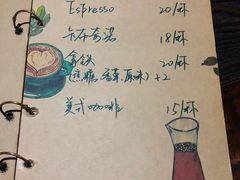 Espresso 20/杯
卡布奇诺 18/杯
拿铁 20/杯
(焦糖,香草,原味)+2
美式咖啡 15/杯